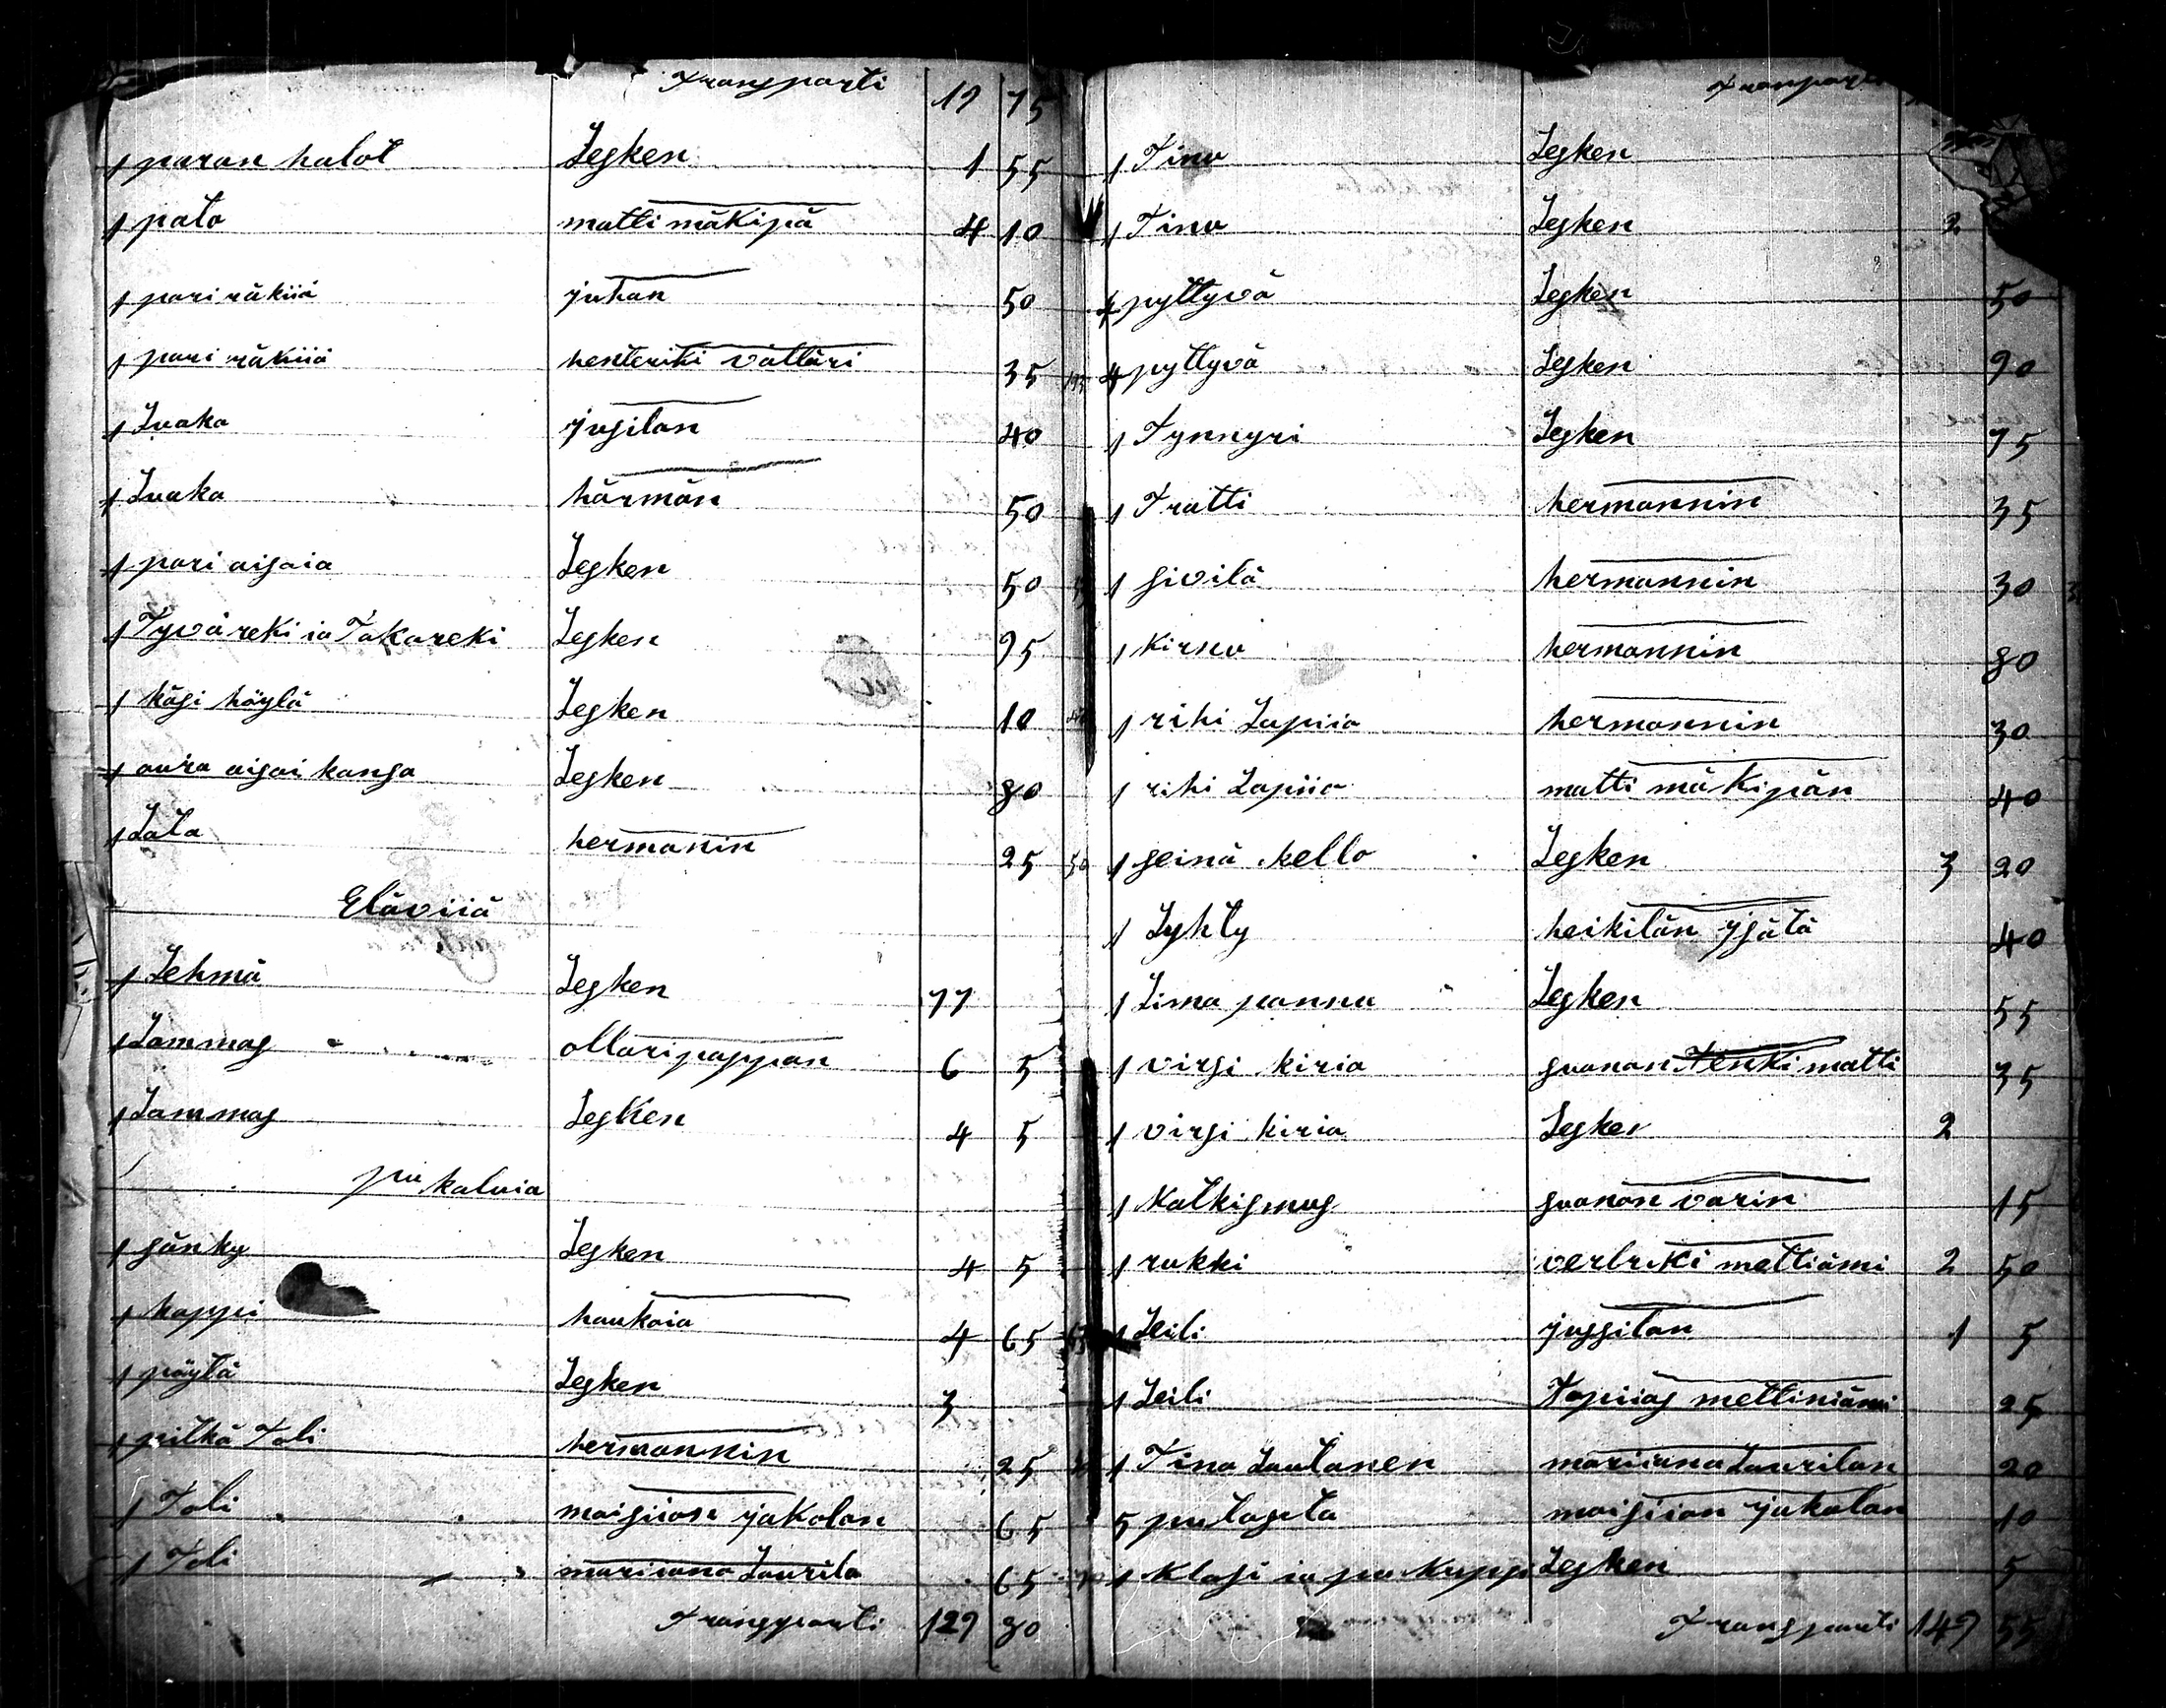 Transpporti 19 75
1 paran halot Lesken 1 55
1 pata matti mäkipä 4 10
1 pari räkiiä juhan 50
1 pari räkiiä henteriki vältäri 35
1 Luaka jusilan 40
1 Luaka härmän 50
1 pari aisaia Lesken 50
1 Tyväreki ia Takareki Lesken 95
1 käsi höylä Lesken 10
1 aura aisai kansa Lesken 80
1 Lata hermanin 25
Eläviiä
1 Lehmä Lesken 77
1 Lammas ollaripappan 6 5
1 Lammas Lesken 4 5
pu kaluia
1 sänky Lesken 4 5
1 kappi haukaia 4 65
1 pöytä Lesken 3
1 pitkä Toli hermannin 25
1 Toli maisiian jakolan 65
1 Toli mariiana Laurila 65
Transpporti 129 80
Transpor
1 Tinu Lesken
1 Tinu Lesken 2
4 pyttyvä Lesken 50
4 pyttyvä Lesken 90
1 Tynnyri Lesken 75
1 Tratti hermannin 35
1 sivilä hermannin 30
1 kirnu hermannin 80
1 rihi Lapiia hermannin 30
1 rihi Lapiia matti mäkipän 40
1 seinä kello Lesken 3 20
1 Lyhty heikilän ysätä 40
1 Lima pannu Lesken 55
1 virsi kiria suanan Tenki matti 35
1 virsi kiria Lesken 2
1 katkismus suanan varin 15
1 rukki verlriki mettiämi 2 50
1 Leili jussilan 1 5
1 Leili Topiias mettiniämi 25
1 Tina Lautanen mariiana Laurilan 20
5 putaseta maisiian jakolan 10
1 klasi ia pu kuppi Lesken 5
Transpparti 149 55